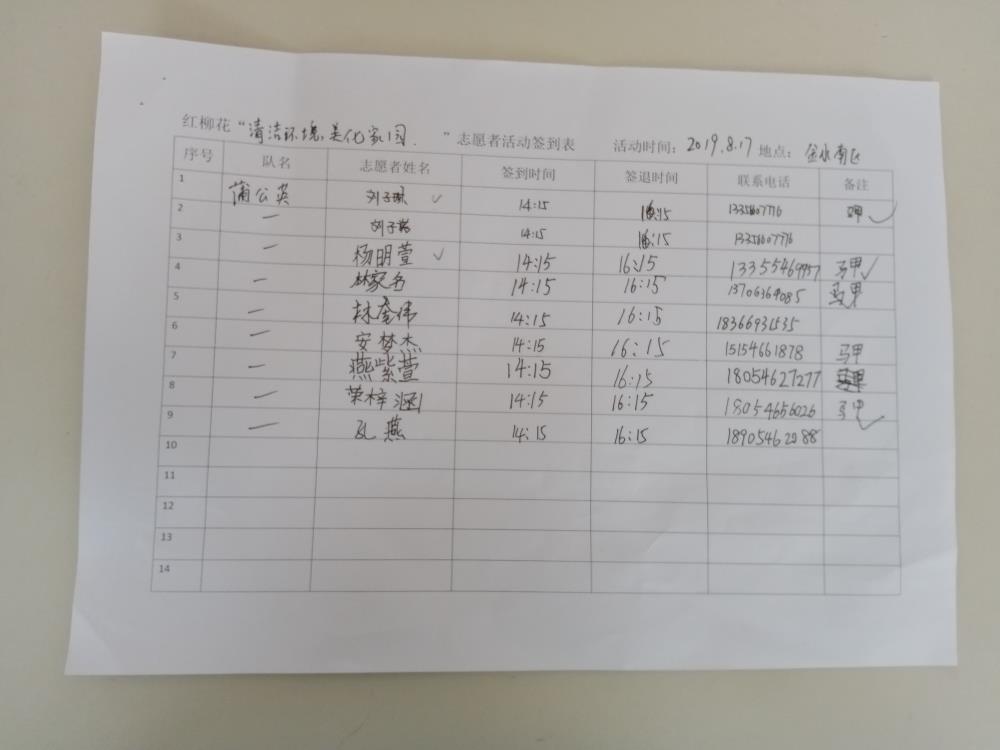 红柳花“清洁环境,美化家园. ”志愿者活动签到表 活动时间: 2019.8.17 地点: 金水南区
序号 队名 志愿者姓名 签到时间 签退时间 联系电话 备注
1 蒲公英 刘子琳 ✓ 14:15 16:15 马甲 ✓
2 一 刘子 14:15 16:15
3 一 杨明萱 ✓ 14:15 16:15 13355469957 马甲 ✓
4 一 林家名 14:15 16:15 13706364085 马甲
5 一 林奎伟 14:15 16:15 18366931535
6 一 安梦杰 14:15 16:15 15154661878 马甲
7 一 燕紫萱 14:15 16:15 18054627277
8 一 荣梓涵 14:15 16:15 18054656026 马甲 ✓
9 一 孔燕 14:15 16:15 18905462088
10
11
12
13
14